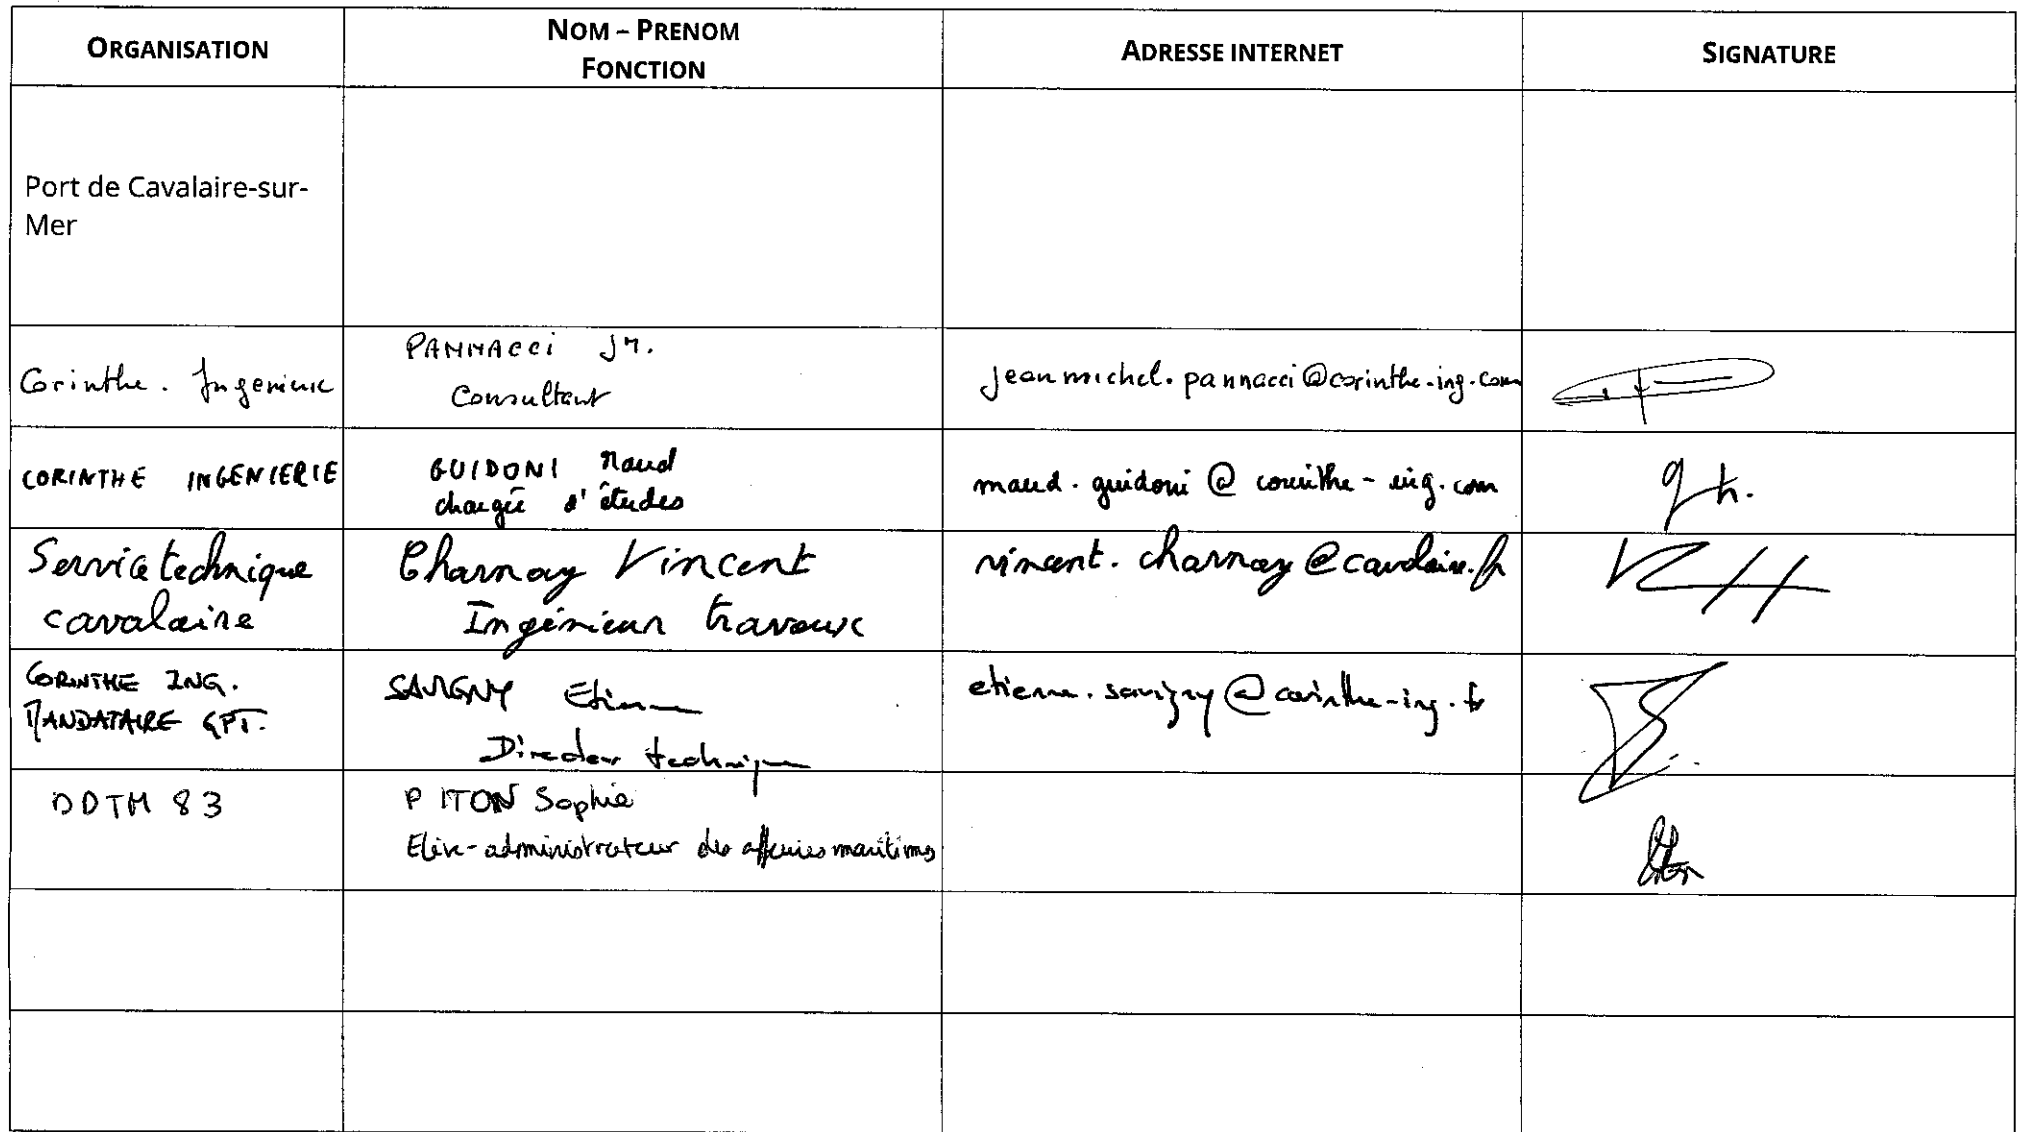 ORGANISATION
NOM – PRENOM
FONCTION
ADRESSE INTERNET
SIGNATURE
Port de Cavalaire-sur-
Mer
Corinthe. Ingenieric
PANNACCi JM.
Consultant
jeanmichel.pannacci@corinthe-ing.com
CORINTHE INGENIERIE
GUIDONI Maud
chargée d'études
maud.guidoni@corinthe-ing.com
Service technique
cavalaire
Charnay Vincent
Ingénieur travaux
vincent.charnay@cavalaire.fr
CORINTHE ING.
MANDATAIRE GPT.
SAVIGNY Etienne
Directeur technique
etienne.savigny@corinthe-ing.fr
DDTM 83
PITON Sophie
Elève-administrateur des affaires maritimes